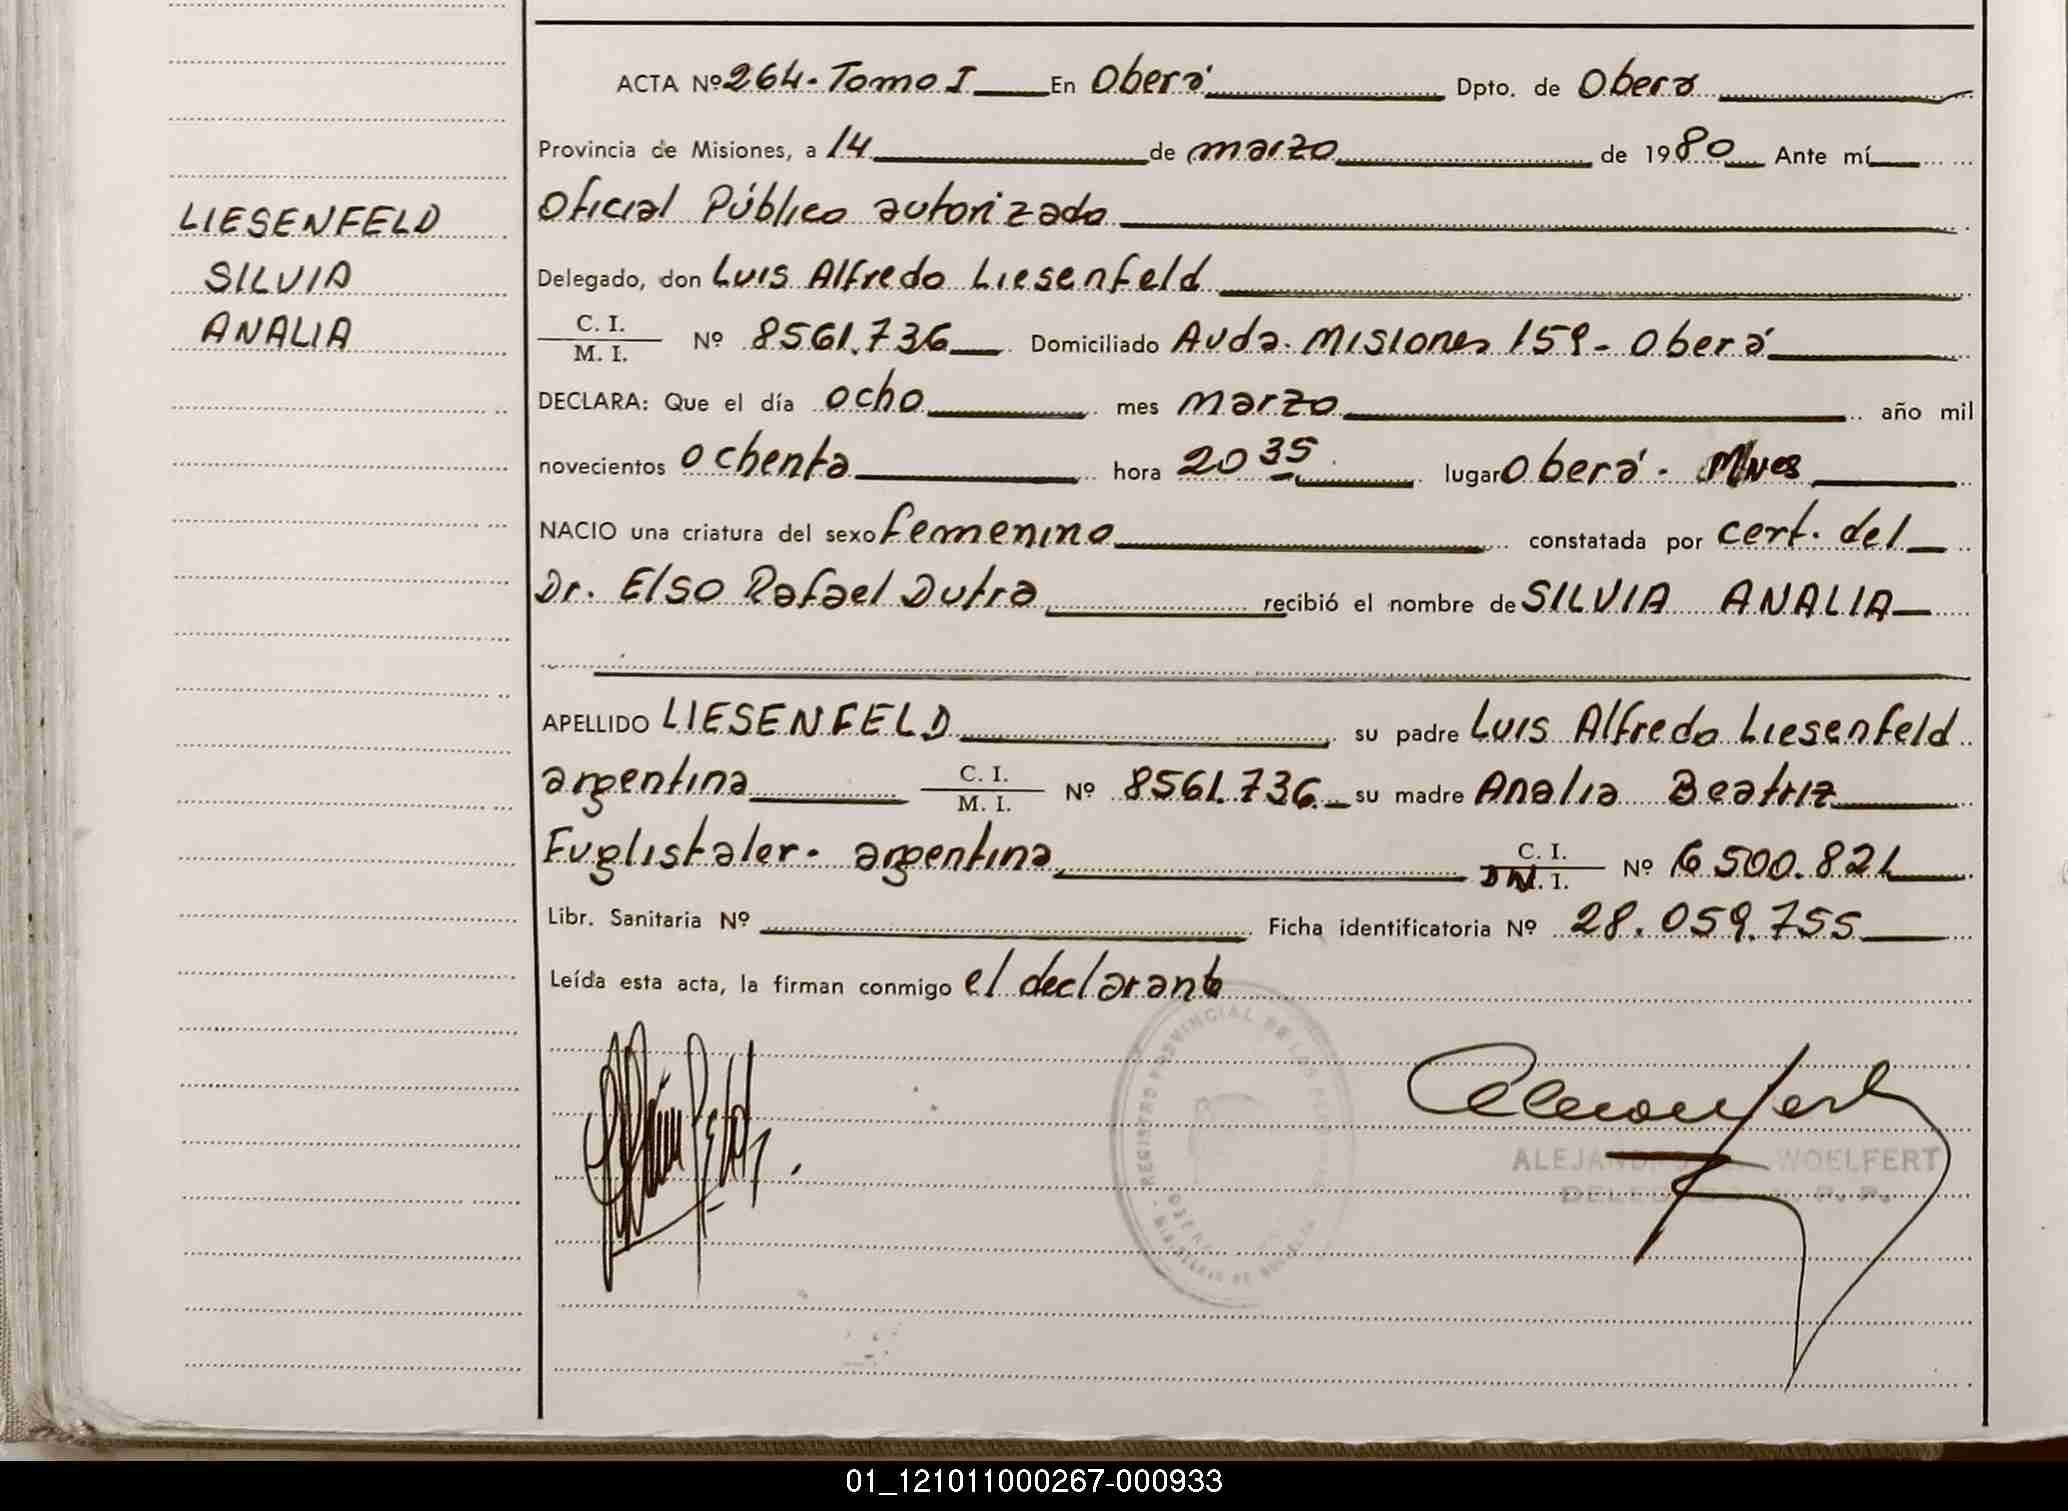 ACTA Nº 264 - Tomo I En Oberá Dpto. de Oberá
Provincia de Misiones, a 14 de marzo de 1980 Ante mí
Oficial Público autorizado
LIESENFELD
SILVIA
ANALIA
Delegado, don Luis Alfredo Liesenfeld
C. I.
M. I. Nº 8561.736 Domiciliado Avda. Misiones 159 - Oberá
DECLARA: Que el día ocho mes marzo año mil
novecientos ochenta hora 20 35 lugar Oberá - Mnes
NACIO una criatura del sexo femenino constatada por cert. del
Dr. Elso Rafael Dutra recibió el nombre de SILVIA ANALIA
APELLIDO LIESENFELD su padre Luis Alfredo Liesenfeld
argentina C. I. M. I. Nº 8561.736 su madre Analia Beatriz
Euglistaler - argentina C. I. DN I. Nº 6500.821
Libr. Sanitaria Nº Ficha identificatoria Nº 28.059.755
Leída esta acta, la firman conmigo el declarante
REGISTRO PROVINCIAL DE LAS
WOELFERT
01_121011000267-000933